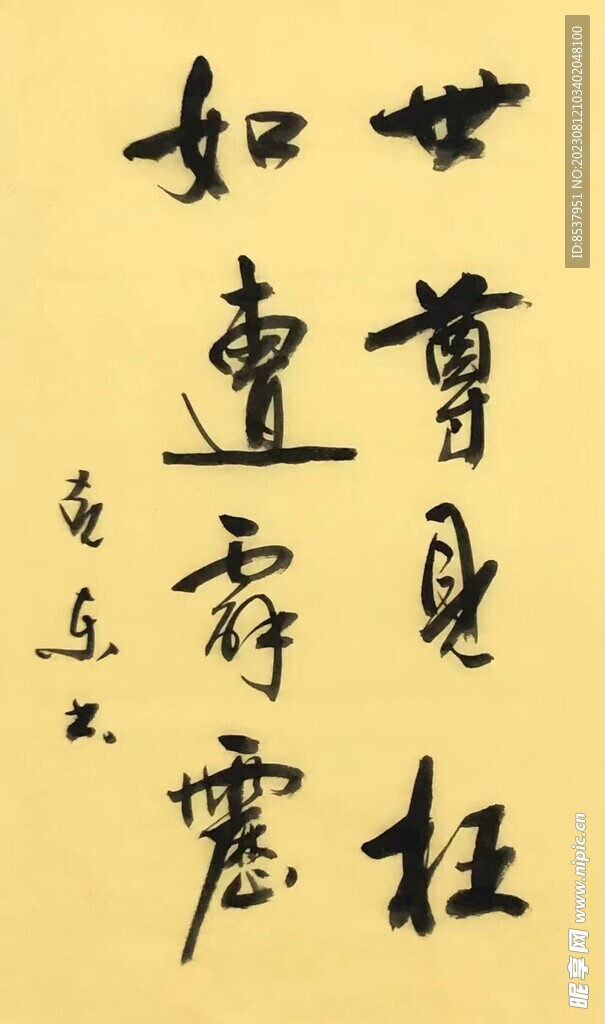 世尊見枉
如遭霹靂
克东书
ID:8537951 NO:20230812103402048100
昵享网 www.nipic.cn